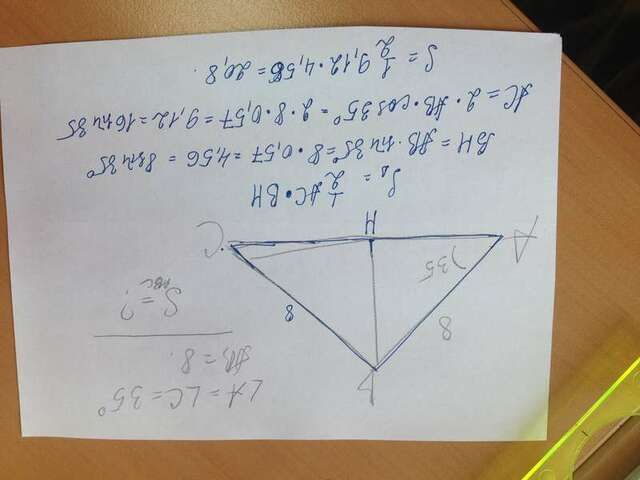 ∠A = ∠C = 35°
AB = 8.
S_ABC = ?
B
8
8
35
A
H
C
S_Δ = 1/2 AC • BH
BH = AB • sin 35° = 8 • 0,57 = 4,56 = 8 sin 35°
AC = 2 • AB • cos 35° = 2 • 8 • 0,57 = 9,12 = 16 sin 35
S = 1/2 9,12 • 4,56 = 20,8.